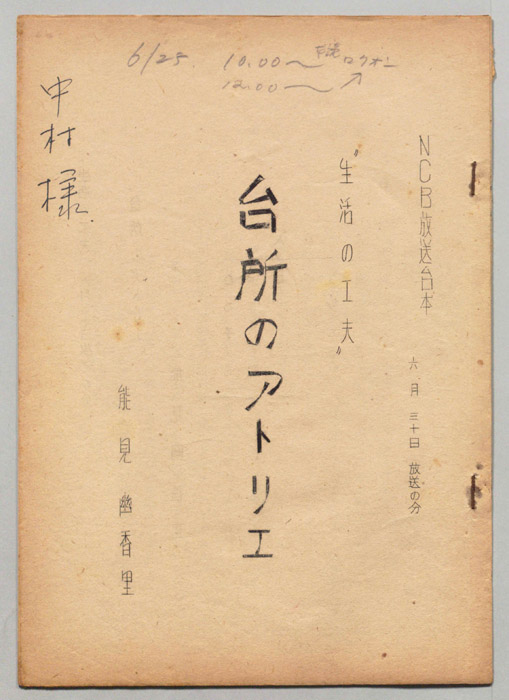 NCB放送台本
六月三十日 放送の分
"生活の工夫"
台所のアトリエ
能見幽香里
中村様
6/25 10.00〜
12.00〜